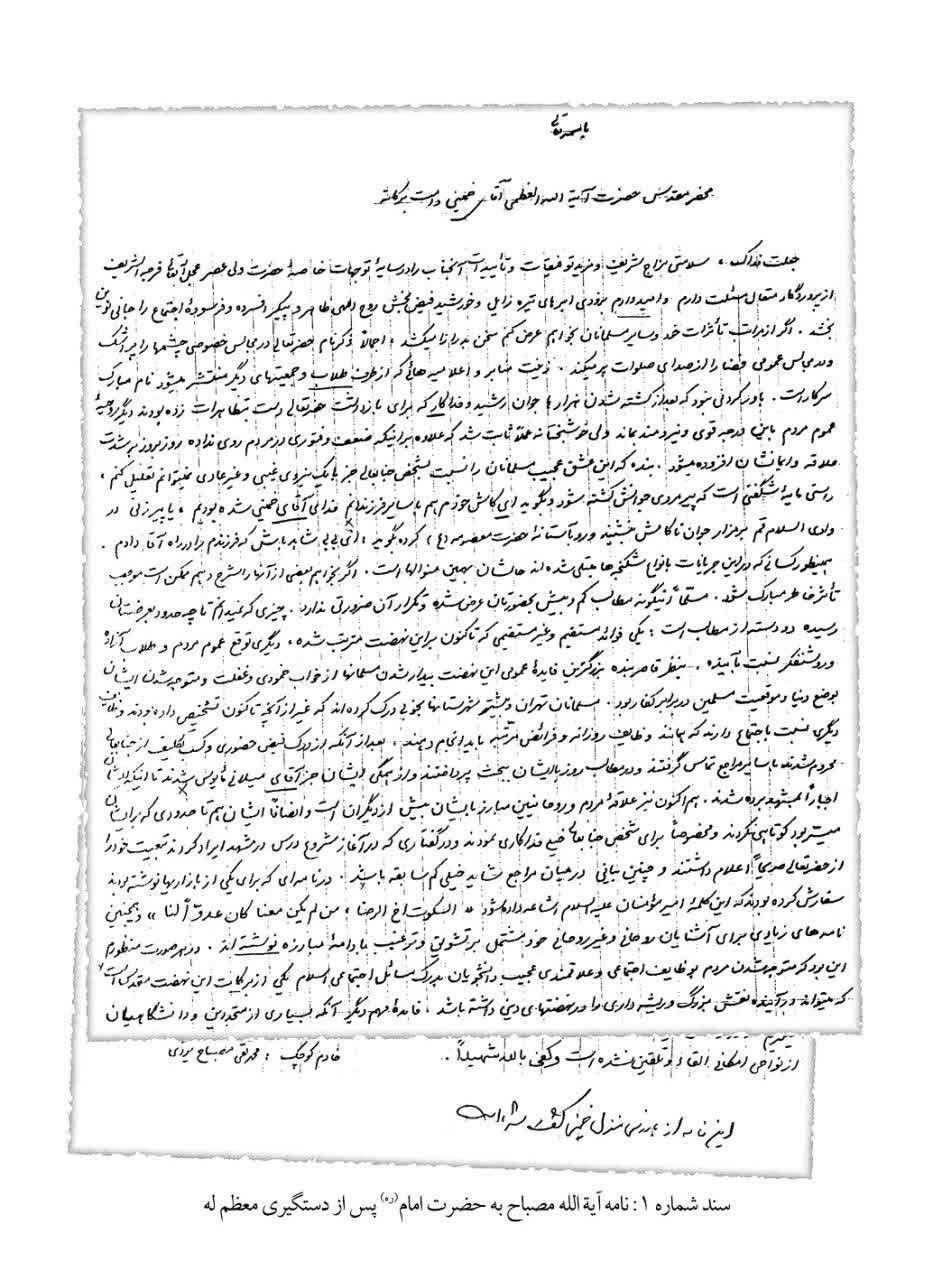 باسمه تعالی
محضر مقدس حضرت آیة الله العظمی آقای خمینی دامت برکاته
جعلت فداک ، سلامتی مزاج شریف و مزید توفیقات و تأییدات آنجناب را در سایهٔ توجهات خاصهٔ حضرت ولی عصر عجل الله تعالی فرجه الشریف
از پروردگار متعال مسئلت دارم و امیدوارم بزودی ابرهای تیره زایل و خورشید فیض بخش روح اللهی ظاهر و پیکر افسرده و فرسودهٔ اجتماع را جانی نوین
بخشد . اگر از مراتب تأثرات خود و سایر مسلمانان بخواهم عرض کنم سخن بدرازا میکشد ، اجمالاً ذکر نام حضرتعالی در مجالس خصوصی چشمها را پر اشک
و در مجالس عمومی فضا را از صدای صلوات پر میکند . زینت منابر و اعلامیه هائی که از طرف طلاب و جمعیتهای دیگر منتشر میشود نام مبارک
سرکار است . باور کردنی نبود که بعد از کشته شدن هزارها جوان رشید و فداکار که برای بازداشت حضرتعالی دست بتظاهرات زده بودند دیگر روحیهٔ
عموم مردم باین درجه قوی و نیرومند بماند ولی خوشبختانه عملاً ثابت شد که علاوه بر اینکه ضعف و فتوری در مردم روی نداده روز بروز بر شدت
علاقه و ایمانشان افزوده میشود . بنده که این عشق عجیب مسلمانان را نسبت بشخص جنابعالی جز با یک نیروی غیبی و غیر عادی نمیتوانم تعلیل کنم ،
راستی مایهٔ شگفتی است که پیرمردی جوانش کشته شود و بگوید ای کاش خودم هم با سایر فرزندانم فدای آقای خمینی شده بودیم ، یا پیرزنی در
وادی السلام قم بر مزار جوان ناکامش نشیند و رو به آستانهٔ حضرت معصومه (ع) کرده بگوید : ای بی بی شاهد باش که فرزندم را در راه آقا دادم .
همینطور کسانی که در این جریانات بانواع شکنجه ها مبتلی شده اند حالشان بهمین منوالها است . اگر بخواهم بعضی از آنها را شرح دهم ممکن است موجب
تأثر خاطر مبارک شود . مسلماً اینگونه مطالب کم و بیش بحضورتان عرض شده و تکرار آن ضرورتی ندارد . چیزی که نمیدانم تا چه حدود بعرضتان
رسیده دو دسته از مطالب است : یکی فوائد مستقیم و غیر مستقیمی که تاکنون بر این نهضت مترتب شده ، دیگری توقع عموم مردم و طلاب آزاده
و روشنفکر نسبت بآینده . بنظر قاصر بنده بزرگترین فایدهٔ عمومی این نهضت بیدار شدن مسلمانها از خواب خمودی و غفلت و متوجه شدن ایشان
بوضع دنیا و موقعیت مسلمین در برابر کفار بود . مسلمانان تهران و بیشتر شهرستانها بخوبی درک کرده اند که غیر از آنچه تاکنون تشخیص داده بودند وظایف
دیگری نسبت باجتماع دارند که مانند وظایف روزانه و فرائض مرتبه باید انجام دهند . بعد از آنکه از درک فیض حضوری و کسب تکلیف از جنابعالی
محروم شدند با سایر مراجع تماس گرفتند و در مطالب روز با ایشان ببحث پرداختند و از همگی ایشان جز آقای میلانی مأیوس شدند تا اینکه ایشان
اجباراً بمشهد برده شدند . هم اکنون نیز علاقهٔ مردم و روحانیین مبارز بایشان بیش از دیگران است و انصافاً ایشان هم تا حدودی که برایشان
میسر بود کوتاهی نکردند و مخصوصاً برای شخص جنابعالی خیلی فداکاری نمودند و در گفتاری که در آغاز شروع درس در مشهد ایراد کردند تبعیت خود را
از حضرتعالی صریحاً اعلام داشتند و چنین بیانی در میان مراجع شاید خیلی کم سابقه باشد . در نامه ای که برای یکی از بازاریها نوشته بودند
سفارش کرده بودند که این کلمهٔ امیر مؤمنان علیه السلام اشاعه داده شود « السکوت اخ الرضا ، من لم یکن معنا کان عدواً لنا » و همچنین
نامه های زیادی برای آشنایان روحانی و غیر روحانی خود مشتمل بر تشویق و ترغیب بادامهٔ مبارزه نوشته اند . در هر صورت منظورم
این بود که متوجه شدن مردم بوظایف اجتماعی و علاقمندی عجیب دانشجویان بدرک مسائل اجتماعی اسلام یکی از برکات این نهضت مقدس است
که میتواند در آینده نقش بزرگ و ریشه داری را در نهضتهای دینی داشته باشد ، فایدهٔ مهم دیگر آنکه بسیاری از متجددین و دانشگاهیان
از نواحی امکانی القاء و تلقین نشده است و کفی بالله شهیداً .
خادم کوچک : محمد تقی مصباح یزدی
این نامه از بازرسی منزل خمینی کشف شده است
سند شماره ۱: نامه آیة الله مصباح به حضرت امام(ره) پس از دستگیری معظم له